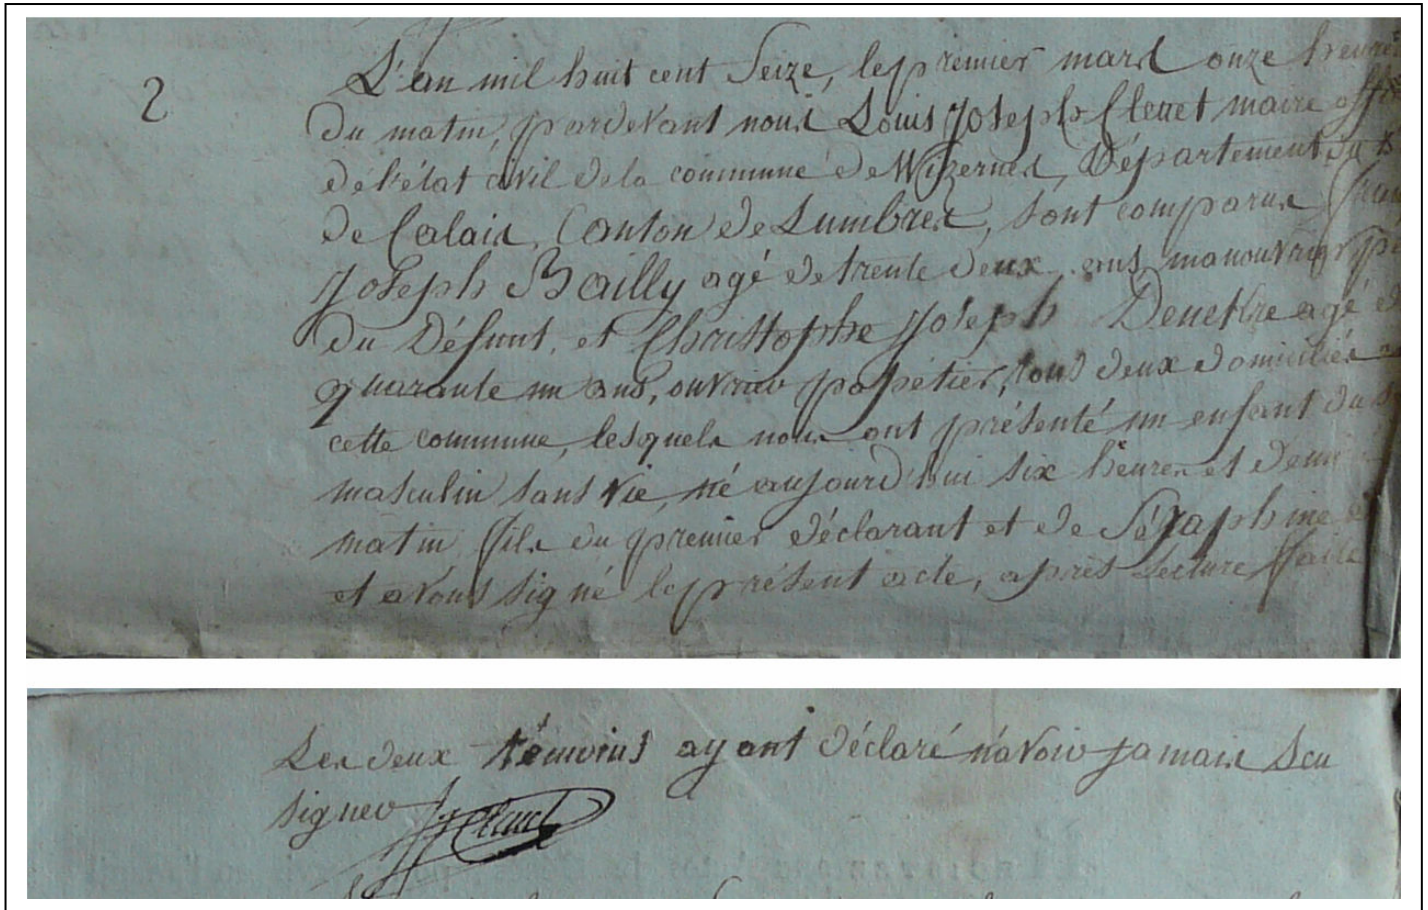 2
L'an mil huit cent Seize, le premier mars onze heures
du matin, pardevant nous Louis Joseph Cleuet maire
de l'état civil de la commune de Wizernes, Département du
de Calais, Canton de Lumbres, sont comparus
Joseph Bailly agé de trente deux ans manouvrier
du Défunt, et Christophe Joseph agé
quarante un ans, ouvrier papetier, tous deux domiciliés
cette commune, lesquels nous ont présenté un enfant du
masculin sans vie, né aujourd'hui six heures et demi
matin fils du premier déclarant et de Séraphine
et avons signé le présent acte, après Lecture faite
Les deux témoins ayant déclaré n'avoir jamais Sçu
signer